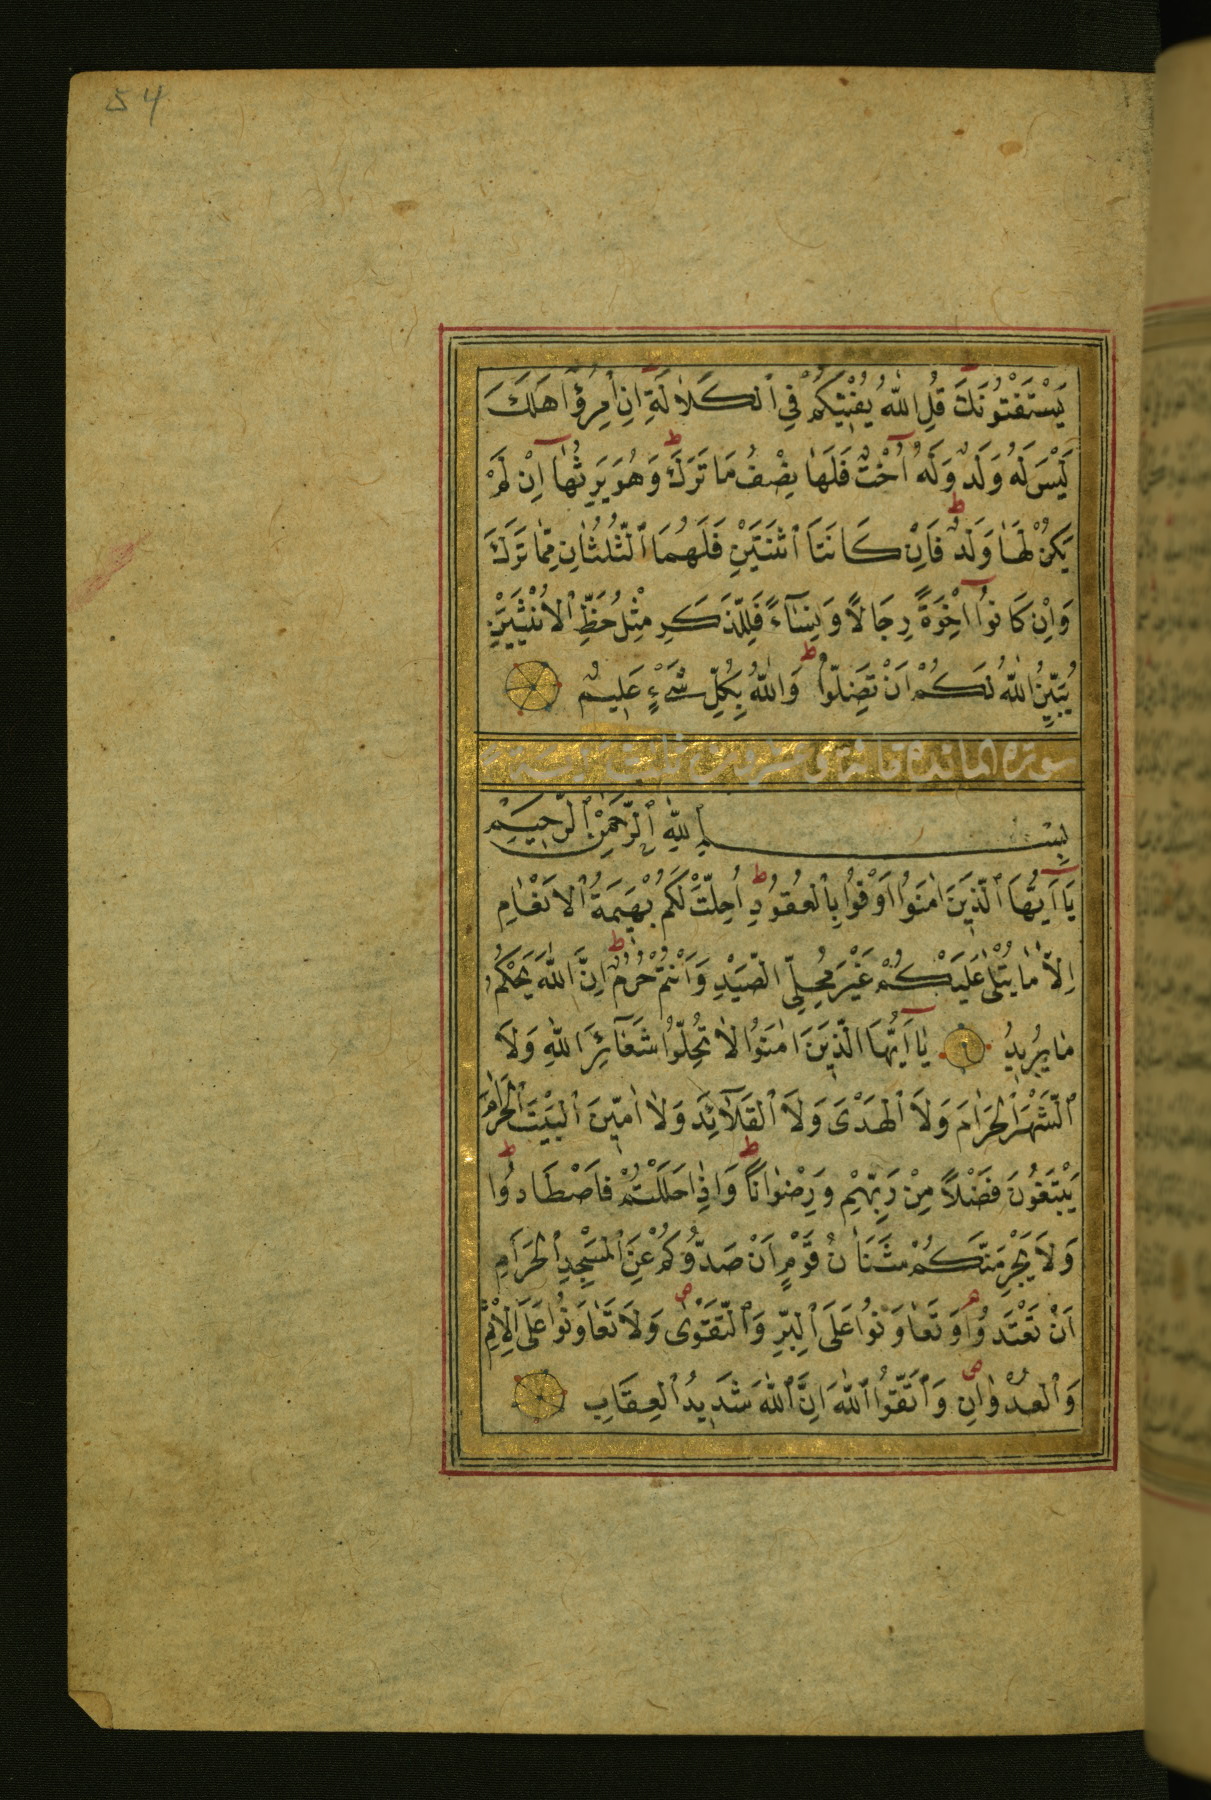 54
يَسْتَفْتُونَكَ قُلِ اللّٰهُ يُفْتٖيكُمْ فِي ٱلْكَلَالَةِ اِنِ ٱمْرُؤٌا هَلَكَ
لَيْسَ لَهُ وَلَدٌ وَلَهُٓ اُخْتٌ فَلَهَا نِصْفُ مَا تَرَكَ ط وَهُوَ يَرِثُهَٓا اِنْ لَمْ
يَكُنْ لَهَا وَلَدٌ ط فَاِنْ كَانَتَا ٱثْنَتَيْنِ فَلَهُمَا ٱلثُّلُثَانِ مِمَّا تَرَكَ
وَاِنْ كَانُٓوا اِخْوَةً رِجَالًا وَنِسَٓاءً فَلِلذَّكَرِ مِثْلُ حَظِّ ٱلْاُنْثَيَيْنِ
يُبَيِّنُ اللّٰهُ لَكُمْ اَنْ تَضِلُّوا ط وَاللّٰهُ بِكُلِّ شَيْءٍ عَلٖيمٌ
سورة المائدة
بِسْمِ ٱللّٰهِ ٱلرَّحْمٰنِ ٱلرَّحٖيمِ
يَٓا اَيُّهَا ٱلَّذٖينَ اٰمَنُوا اَوْفُوا بِٱلْعُقُودِ ط اُحِلَّتْ لَكُمْ بَهٖيمَةُ ٱلْاَنْعَامِ
اِلَّا مَا يُتْلٰى عَلَيْكُمْ غَيْرَ مُحِلِّي الصَّيْدِ وَاَنْتُمْ حُرُمٌ ط اِنَّ اللّٰهَ يَحْكُمُ
مَا يُرٖيدُ يَٓا اَيُّهَا الَّذٖينَ اٰمَنُوا لَا تُحِلُّوا شَعَٓائِرَ اللّٰهِ وَلَا
ٱلشَّهْرَ ٱلْحَرَامَ وَلَا ٱلْهَدْيَ وَلَا ٱلْقَلَٓائِدَ وَلَٓا اٰمّٖينَ ٱلْبَيْتَ ٱلْحَرَامَ
يَبْتَغُونَ فَضْلًا مِنْ رَبِّهِمْ وَرِضْوَانًا ط وَاِذَا حَلَلْتُمْ فَاصْطَادُوا ط
وَلَا يَجْرِمَنَّكُمْ شَنَاٰنُ قَوْمٍ اَنْ صَدُّوكُمْ عَنِ ٱلْمَسْجِدِ ٱلْحَرَامِ
اَنْ تَعْتَدُوا م وَتَعَاوَنُوا عَلَى ٱلْبِرِّ وَٱلتَّقْوٰى ص وَلَا تَعَاوَنُوا عَلَى ٱلْاِثْمِ
وَٱلْعُدْوَانِ ص وَٱتَّقُوا ٱللّٰهَ اِنَّ ٱللّٰهَ شَدٖيدُ ٱلْعِقَابِ